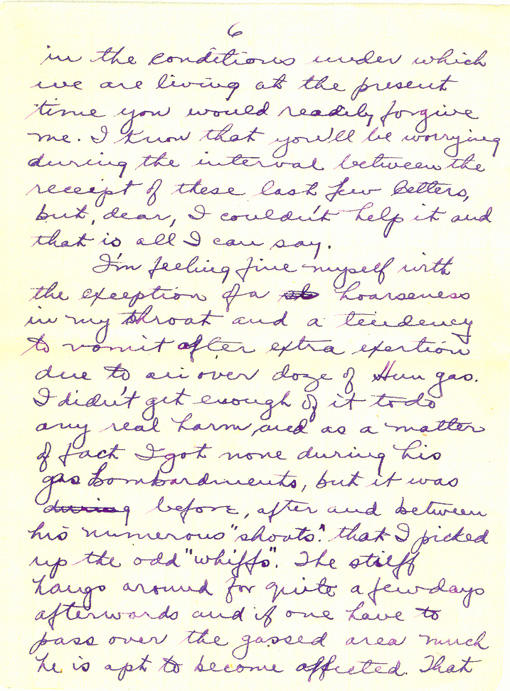 6
in the conditions under which
we are living at the present
time you would readily forgive
me. I know that you'll be worrying
during the interval between the
receipt of these last few letters,
but, dear, I couldn't help it and
that is all I can say.
I'm feeling fine myself with
the exception of a hoarseness
in my throat and a tendency
to vomit after extra exertion
due to an over doze of Hun gas.
I didn't get enough of it to do
any real harm, and as a matter
of fact I got none during his
gas bombardments, but it was
during before, after and between
his numerous "shoots". that I picked
up the odd "whiffs". The stuff
hangs around for quite a few days
afterwards and if one have to
pass over the gassed area much
he is apt to become affected. That